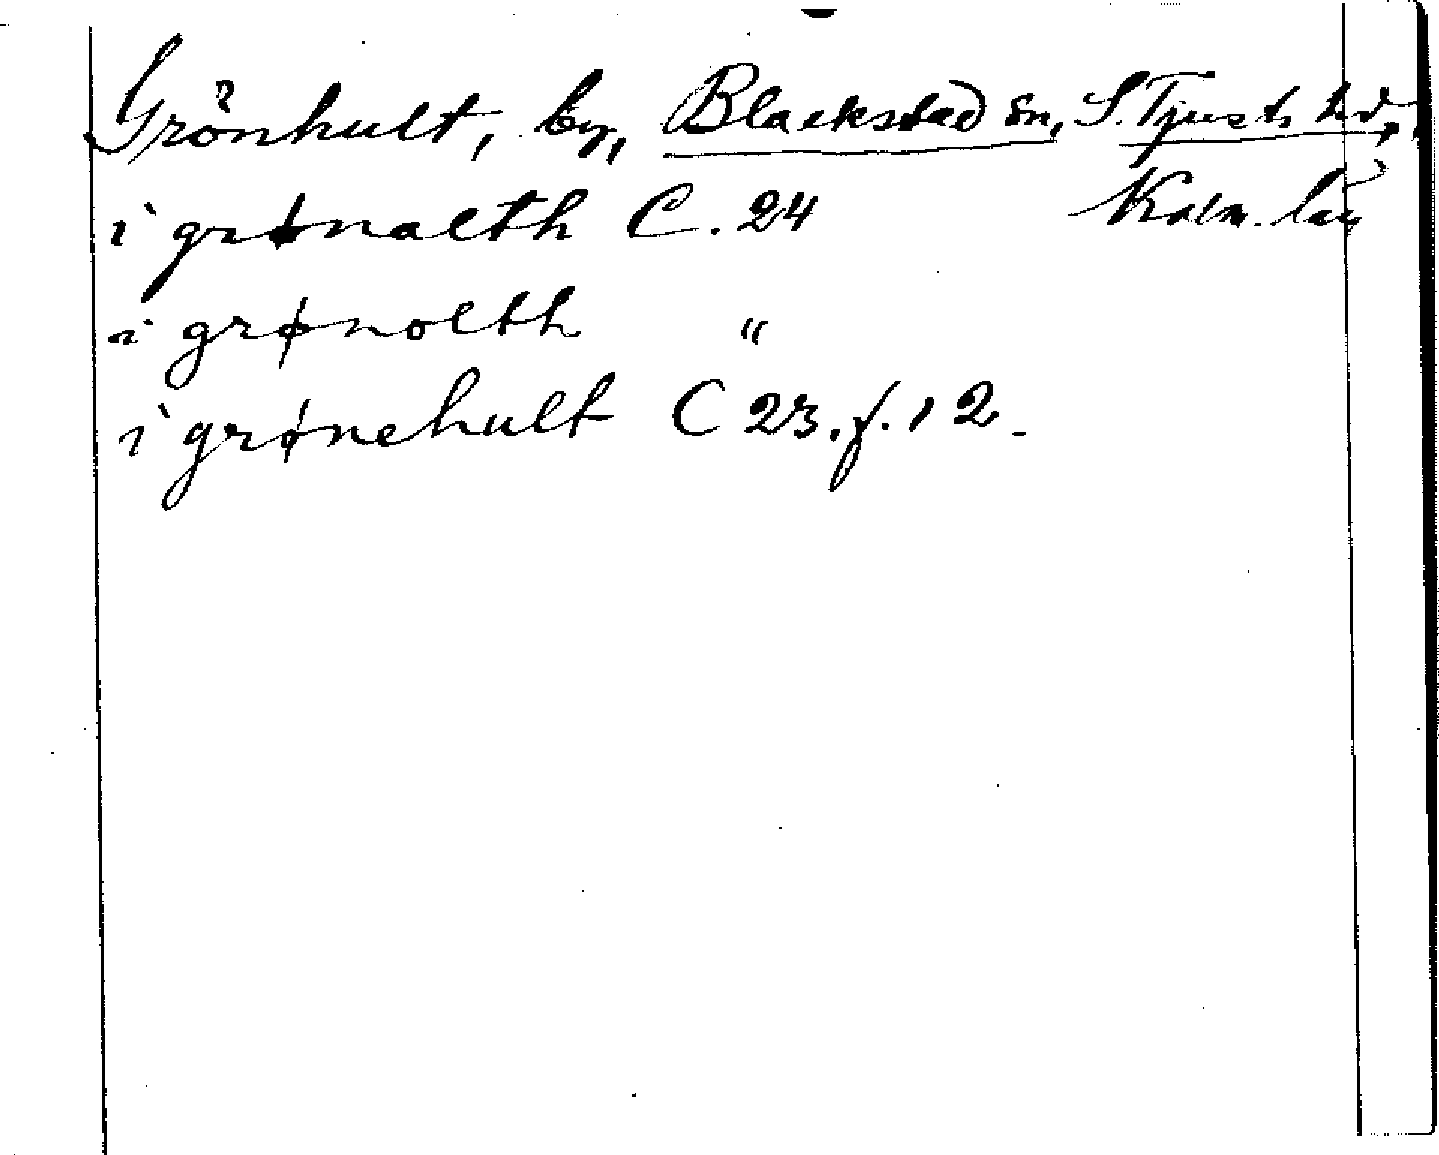 Grönhult, by, Blackstad sn, S. Tjusts hd,
Kalm. län
i grønaelth C. 24
i grønoelth "
i grønehult C 23. f. 12.